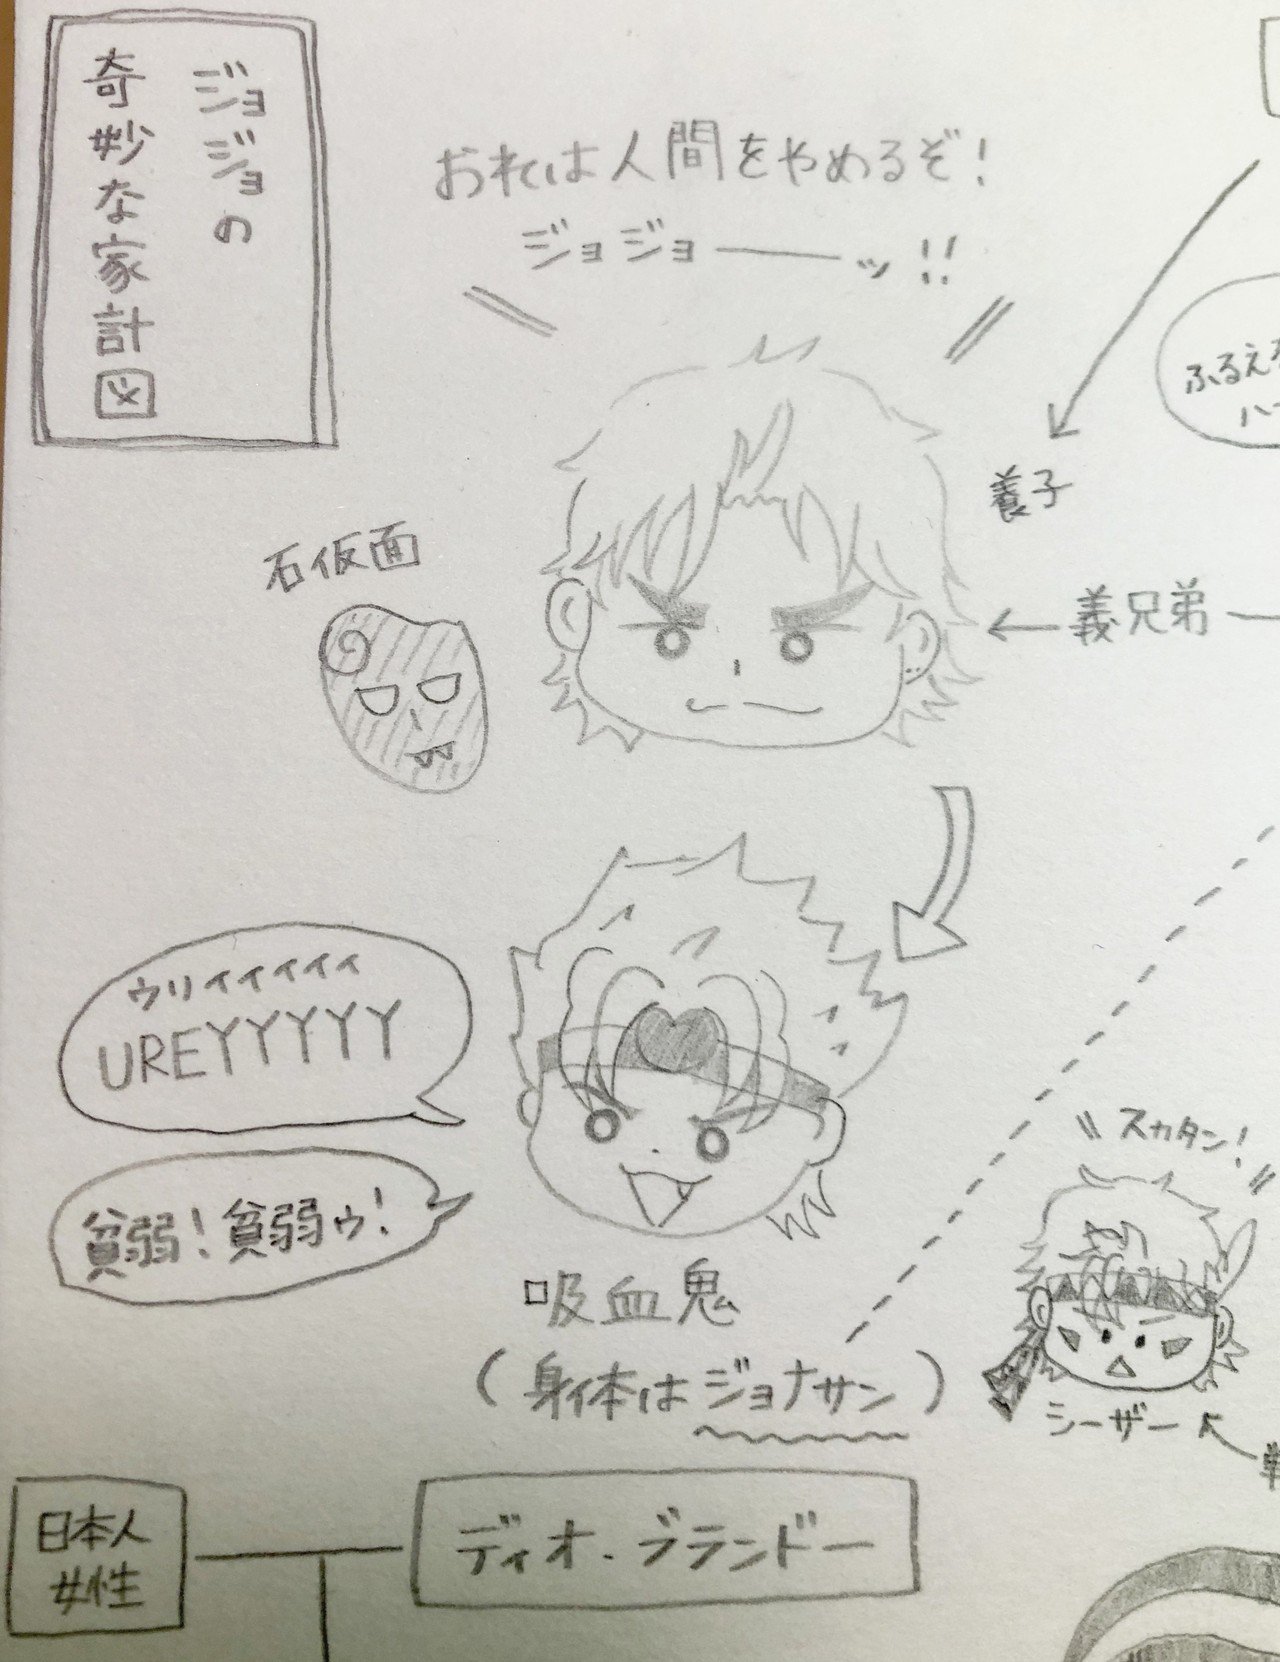 ジョジョの
奇妙な家計図
おれは人間をやめるぞ！
ジョジョ――ッ!!
ふるえ
ハー
養子
石仮面
義兄弟
ウリィィィィィ
UREYYYYY
貧弱！貧弱ゥ！
スカタン！
吸血鬼
（身体はジョナサン）
シーザー
日本人
女性
ディオ・ブランドー